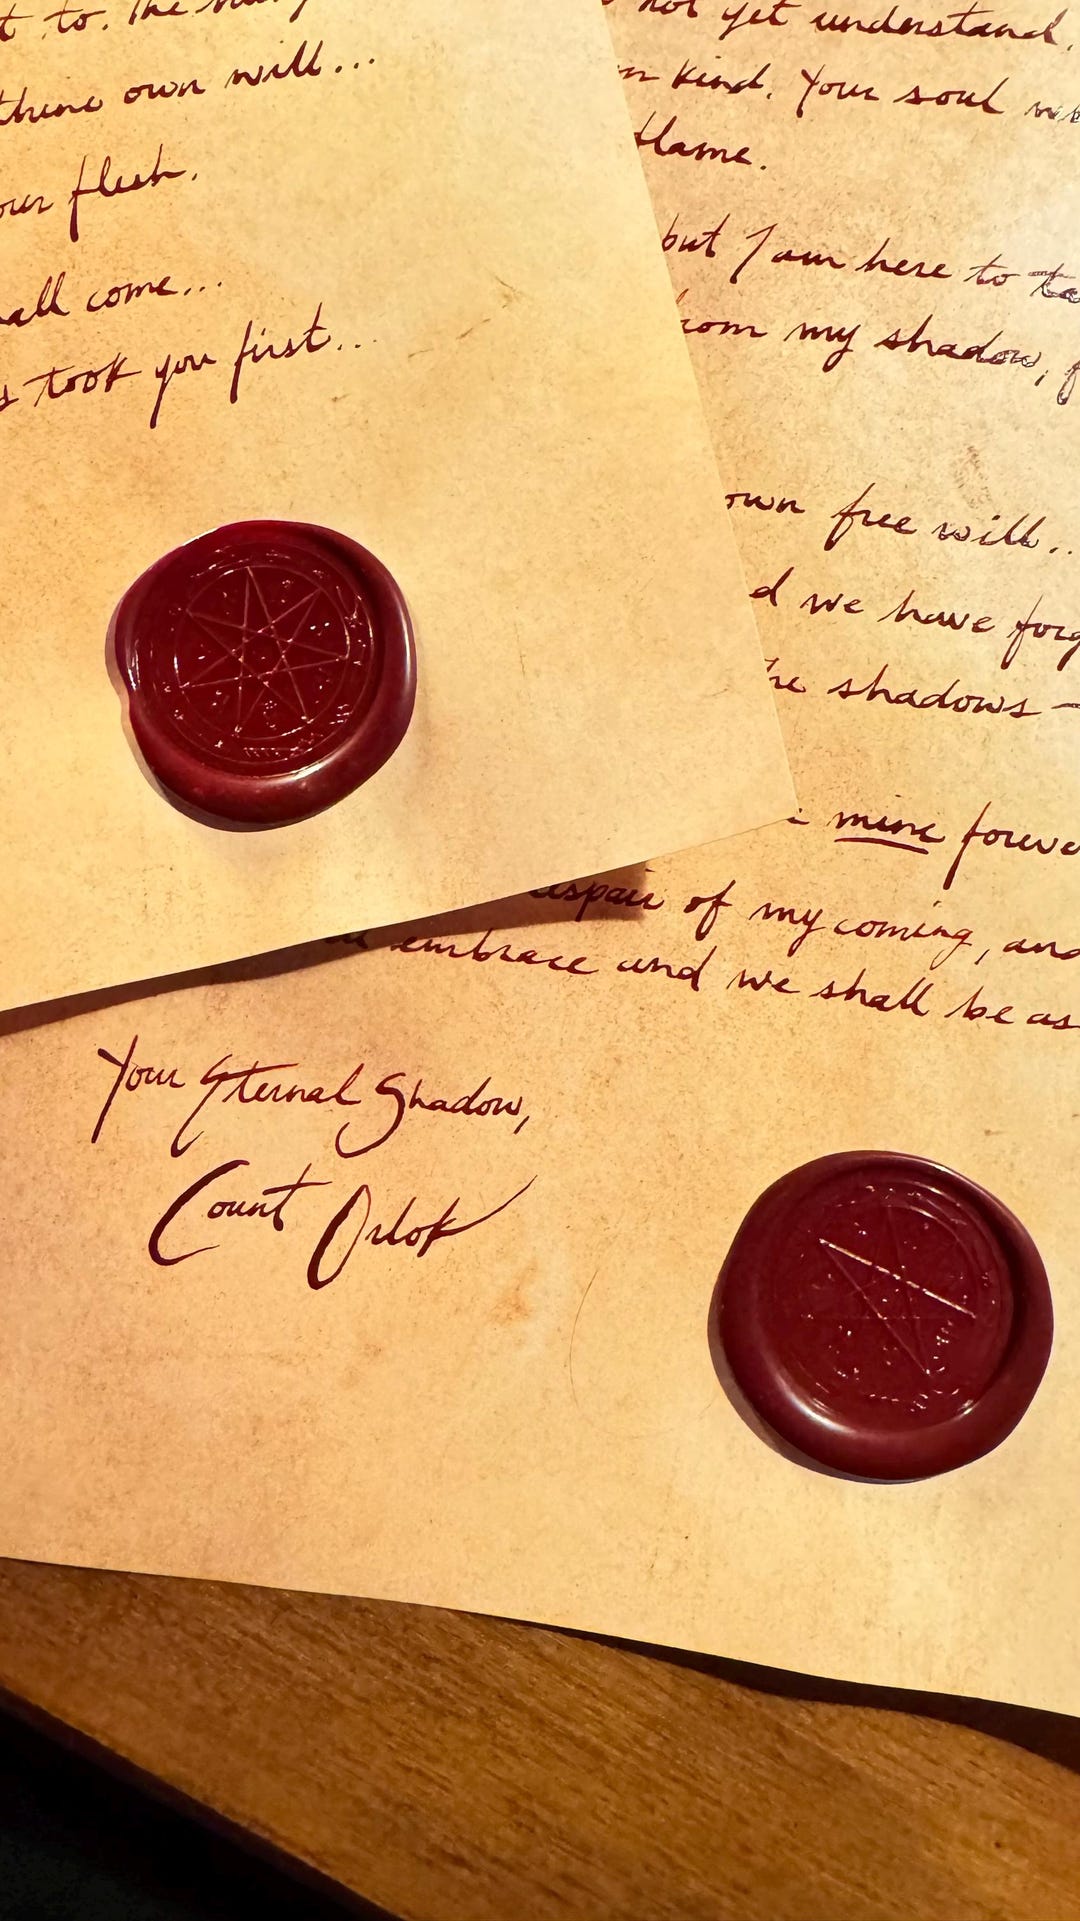 to. The
thine own will...
our flesh.
all come...
took you first...
not yet understand.
kind. Your soul
flame.
but I am here to
from my shadow,
own free will...
we have
the shadows —
mine
despair of my coming, and
embrace and we shall be as
Your Eternal Shadow,
Count Orlok